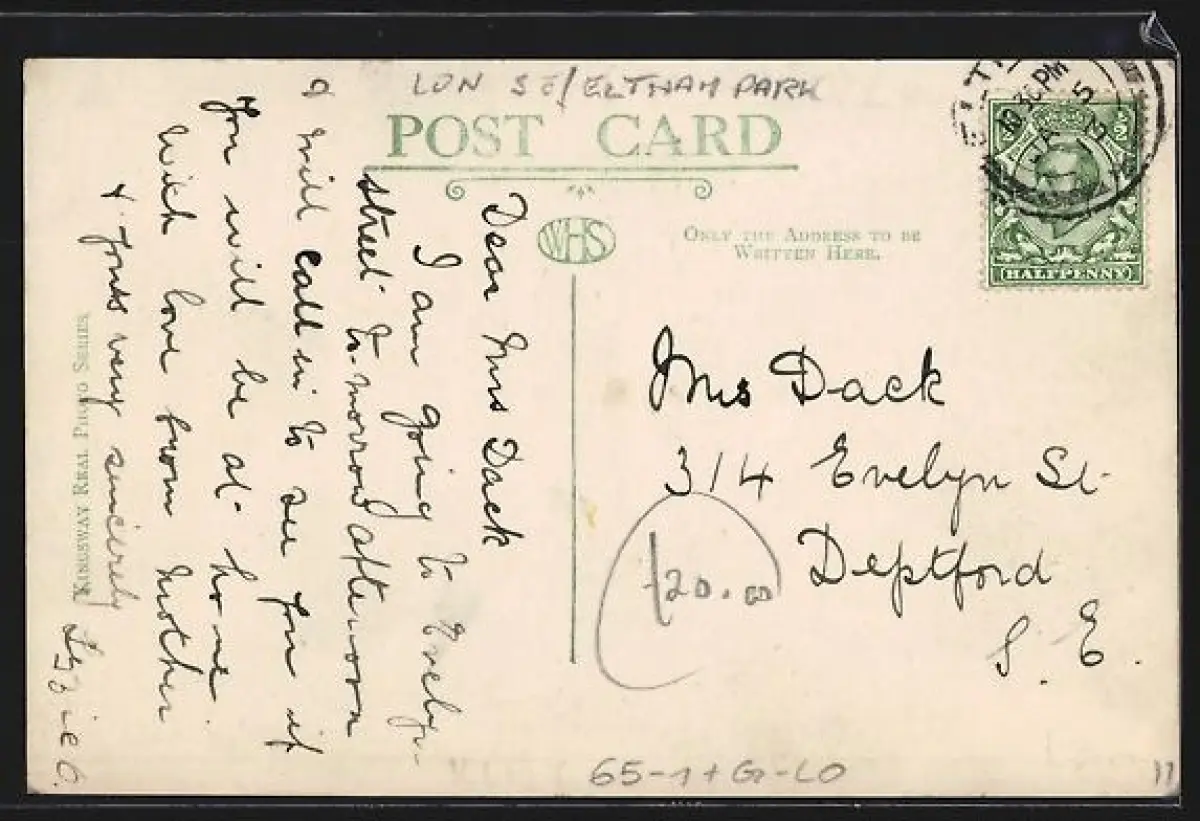 LON SE/ELTHAM PARK
POST CARD
WHS
ONLY THE ADDRESS TO BE
WRITTEN HERE.
HALFPENNY
10 30 PM
5
Dear Mrs Dack
I am going to Evelyn
street to-morrow afternoon
& will call in to see you if
you will be at home
With love from Mother
& Yours very sincerely
Lizzie C.
KINGSWAY REAL PHOTO SERIES
Mrs Dack
314 Evelyn St
Deptford
S. E.
120.00
65-1+G-LO